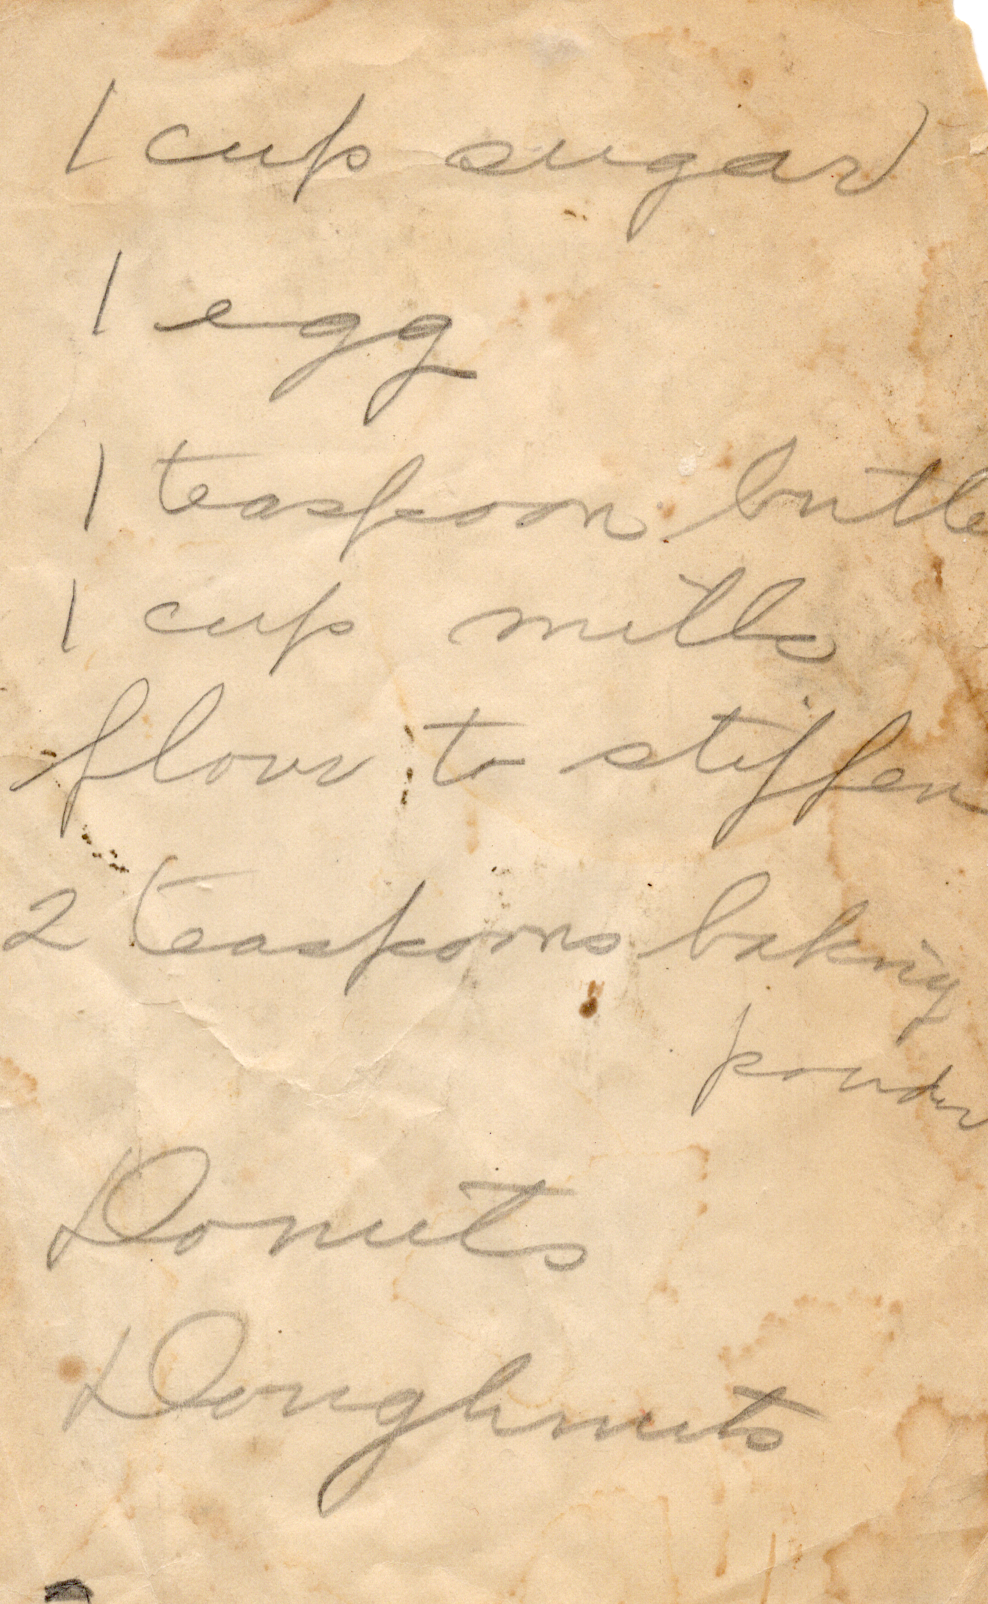 1 cup sugar
1 egg
1 teaspoon butte
1 cup milk
flour to stiffen
2 teaspoons baking
powder
Donuts
Doughnuts